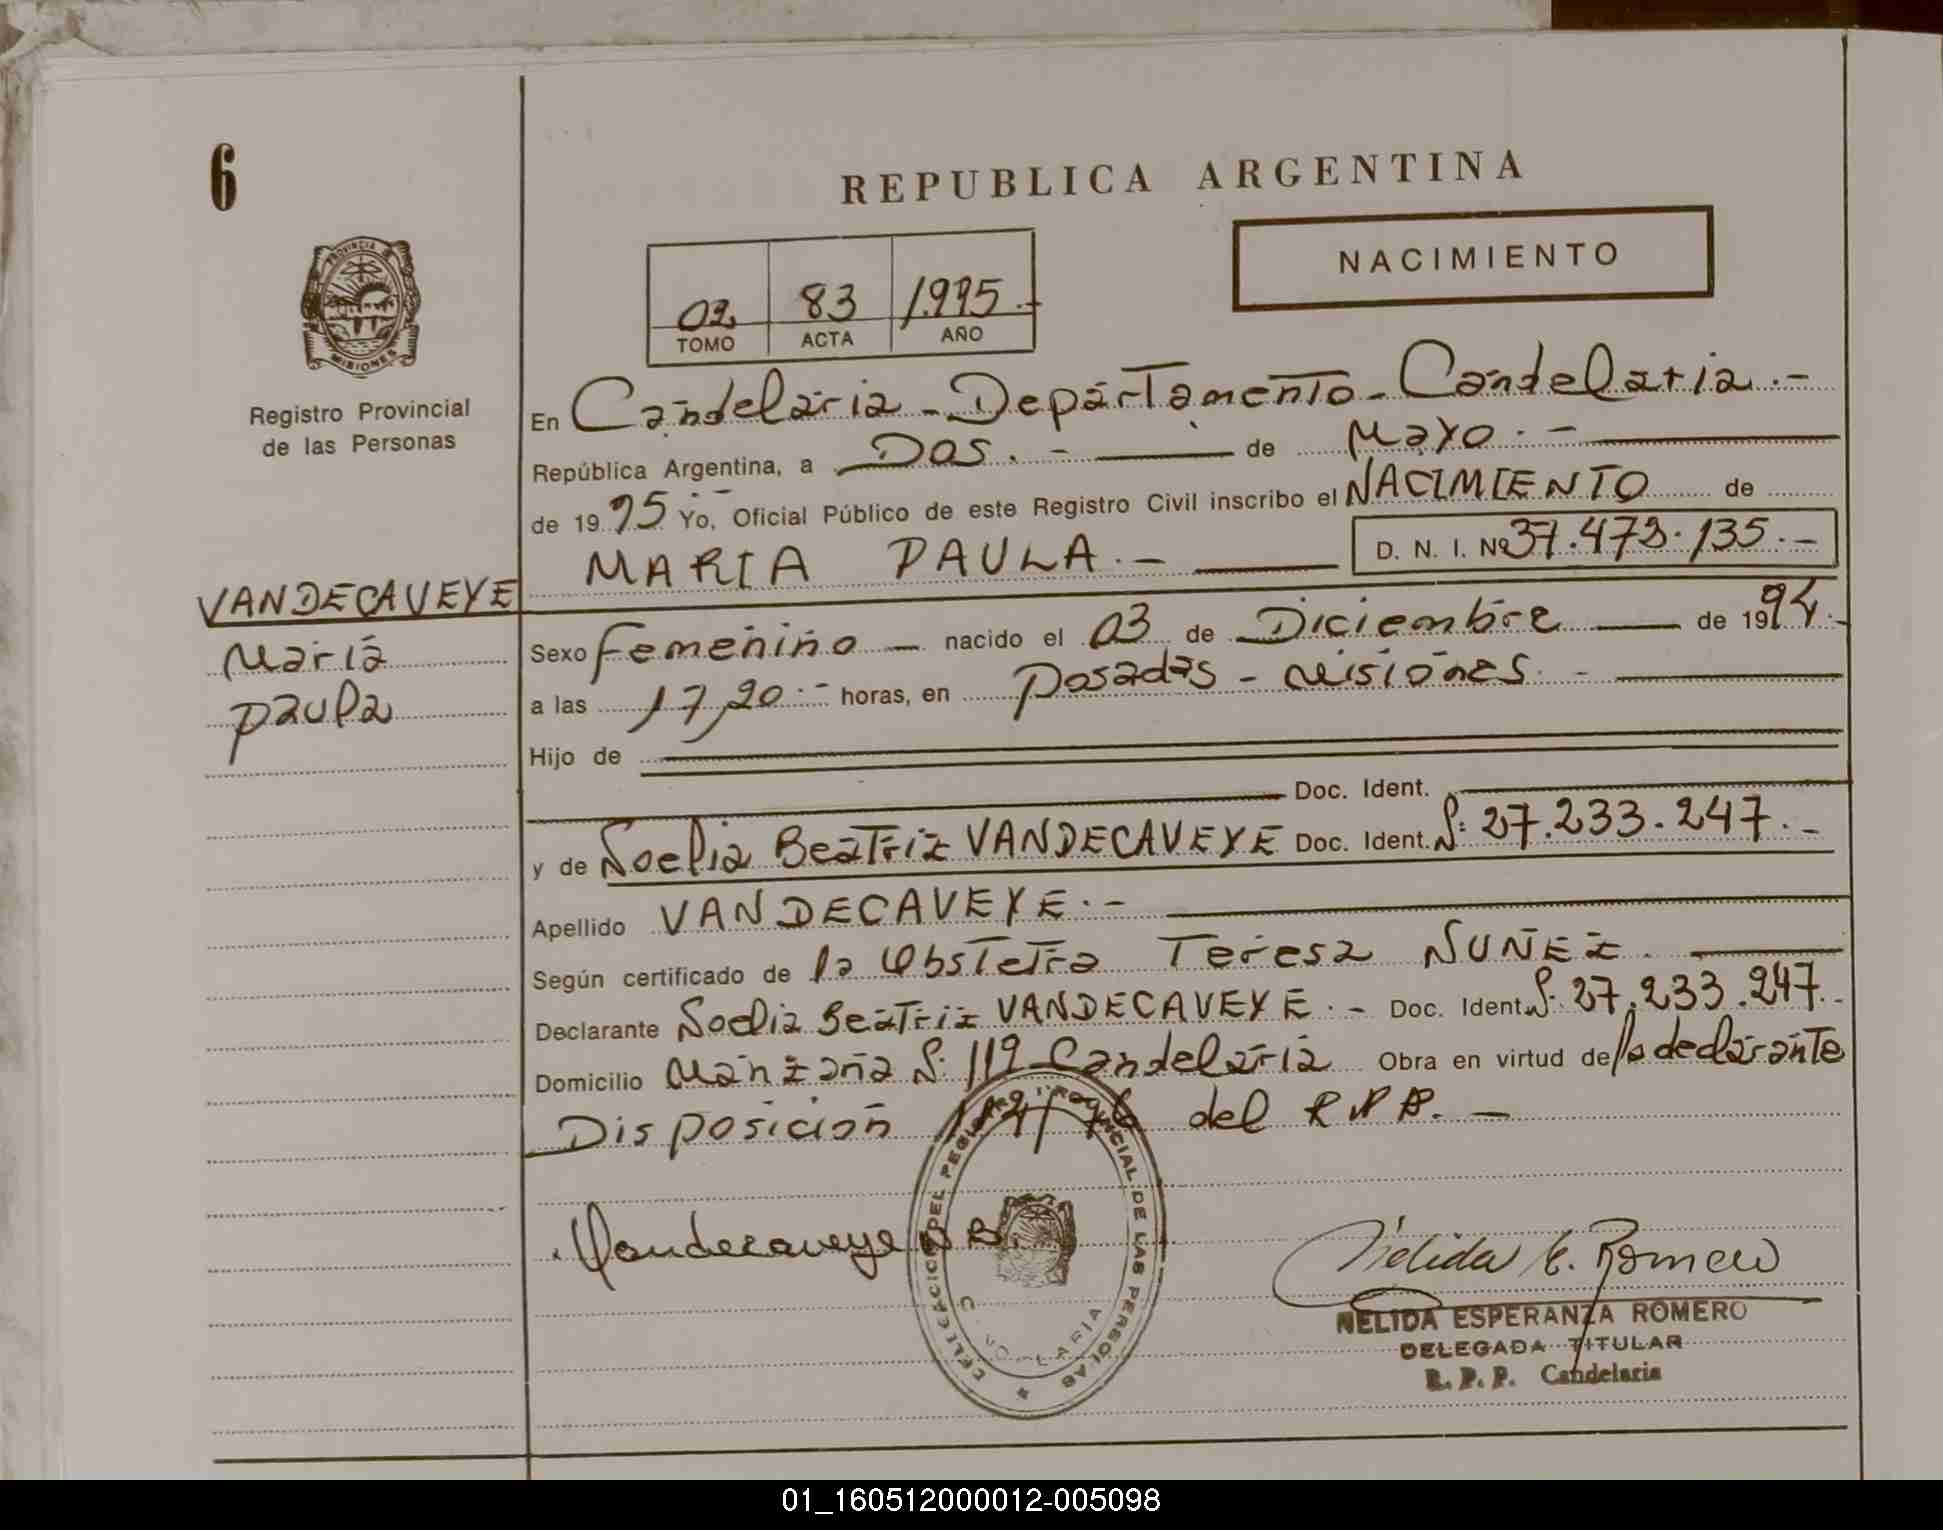 6
REPUBLICA ARGENTINA
NACIMIENTO
02 83 1.995.-
TOMO ACTA AÑO
PROVINCIA DE MISIONES
Registro Provincial
de las Personas
En Candelaria - Departamento - Candelaria.-
República Argentina, a Dos.- de Mayo.-
de 1995.- Yo, Oficial Público de este Registro Civil inscribo el NACIMIENTO de
MARIA PAULA.- D. N. I. Nº 37.473.135.-
VANDECAVEYE
Maria
Paula
Sexo femenino - nacido el 03 de Diciembre de 1994.-
a las 17,20.- horas, en Posadas - Misiones.-
Hijo de
Doc. Ident.
y de Noelia Beatriz VANDECAVEYE Doc. Ident. Nº: 27.233.247.-
Apellido VANDECAVEYE.-
Según certificado de la Obstetra Teresa NUÑEZ.
Declarante Noelia Beatriz VANDECAVEYE.- Doc. Ident. Nº: 27.233.247.-
Domicilio Manzana Nº: 119 - Candelaria Obra en virtud de la declarante
Disposición del R.P.P.-
Vandecaveye N B.
DELEGACION DEL REGISTRO PROVINCIAL DE LAS PERSONAS
CANDELARIA
Nélida E. Romero
NELIDA ESPERANZA ROMERO
DELEGADA TITULAR
R. P. P. Candelaria
01_160512000012-005098